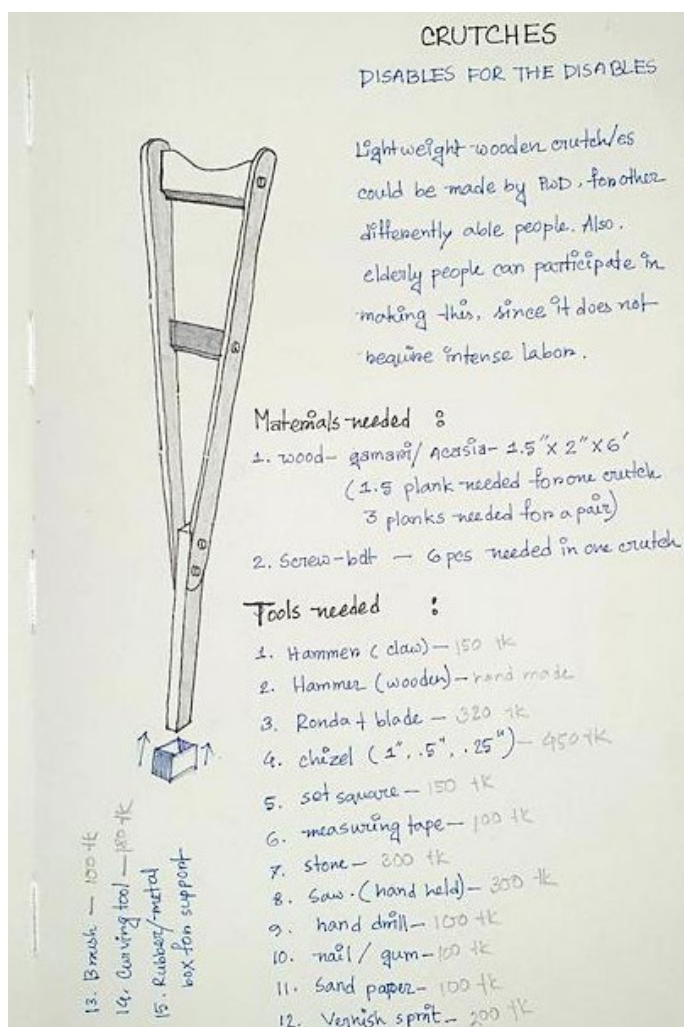 CRUTCHES
DISABLES FOR THE DISABLES
Lightweight wooden crutch/es
could be made by PWD, for other
differently able people. Also,
elderly people can participate in
making this, since it does not
require intense labor.
Materials needed :
1. wood- gamari/ Acasia- 1.5"X 2"X 6'
(1.5 plank needed for one crutch
3 planks needed for a pair)
2. Screw-bolt — 6 pcs needed in one crutch
Tools needed :
1. Hammer (claw)— 150 tk
2. Hammer (wooden)— hand made
3. Ronda + blade — 320 tk
4. chizel (1", .5", .25")— 450 tk
5. set square — 150 tk
6. measuring tape— 100 tk
7. stone— 300 tk
8. Saw. (hand held)— 300 tk
9. hand drill— 100 tk
10. nail / gum—100 tk
11. Sand paper— 100 tk
12. Vernish sprit— 200 tk
13. Brush — 100 tk
14. Curving tool — 180 tk
15. Rubber/metal
box for support